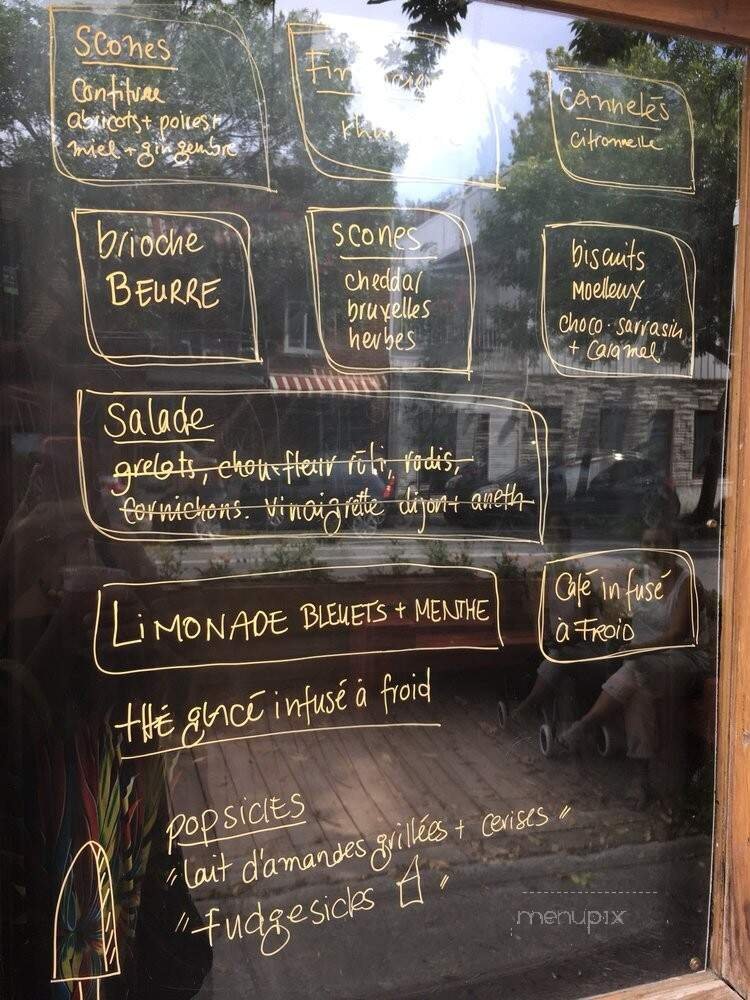 Scones
Confiture
abricots + poires +
miel + gingembre
cannelés
citronnelle
brioche
BEURRE
scones
cheddar
bruxelles
herbes
biscuits
Moelleux
choco. sarrasin
+ caramel
Salade
grelots, chou-fleur rôti, radis,
cornichons. vinaigrette dijon + aneth
LiMONADE BLEUETS + MENTHE
Café infusé
à FROID
THÉ glacé infusé à froid
popsicles
"lait d'amandes grillées + cerises"
"fudgesicks"
menupix